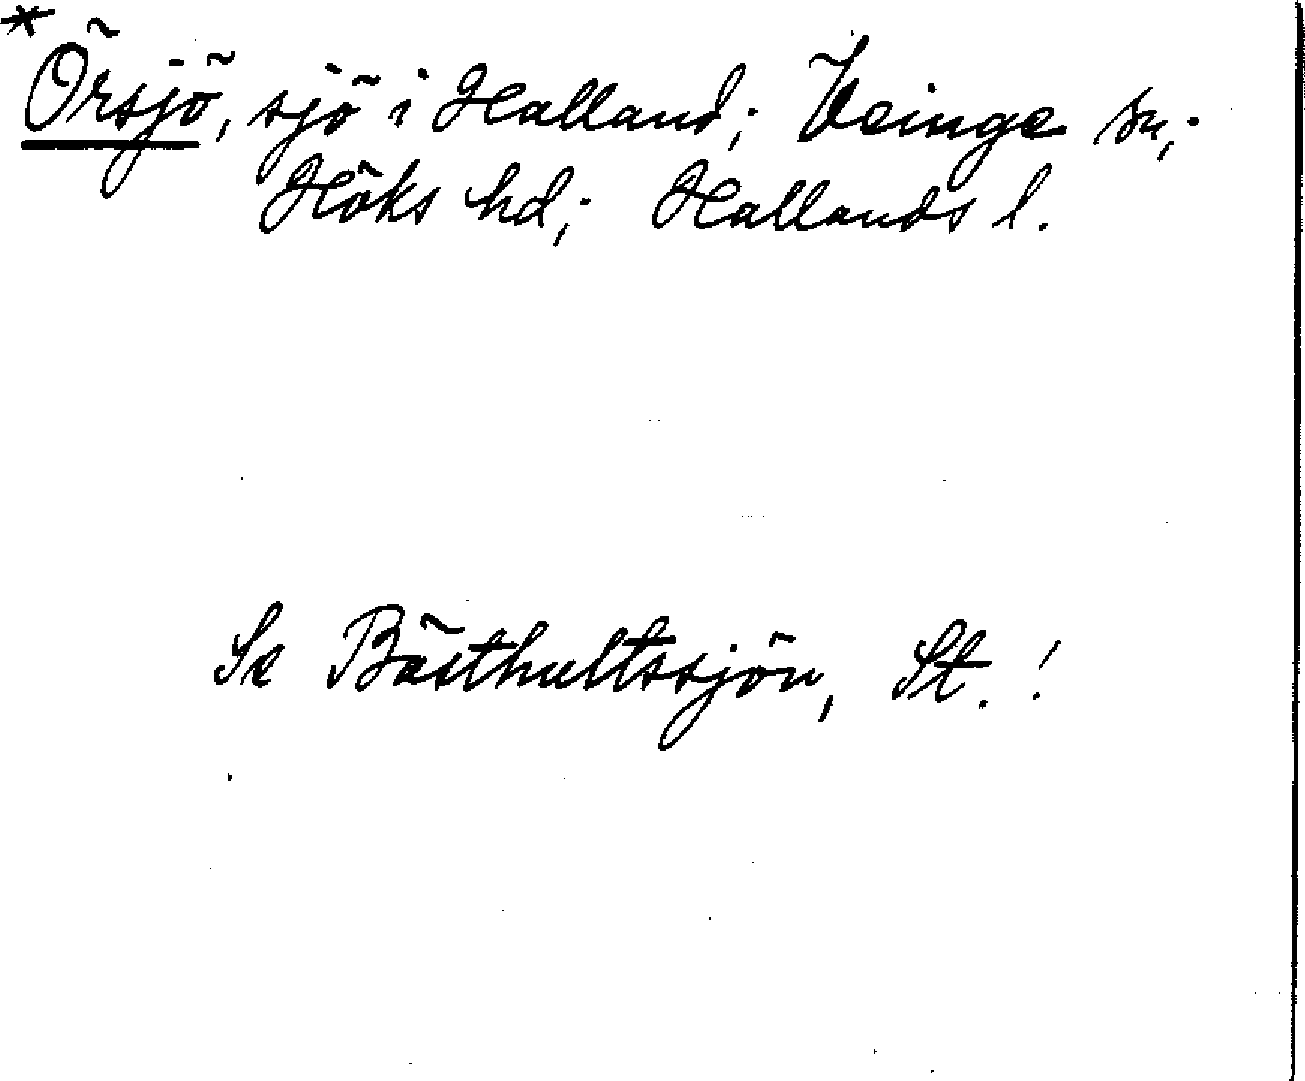 *
Örsjö, sjö i Halland; Veinge sn,;
Höks hd,; Hallands l.
Se Bästhultssjön, St. !